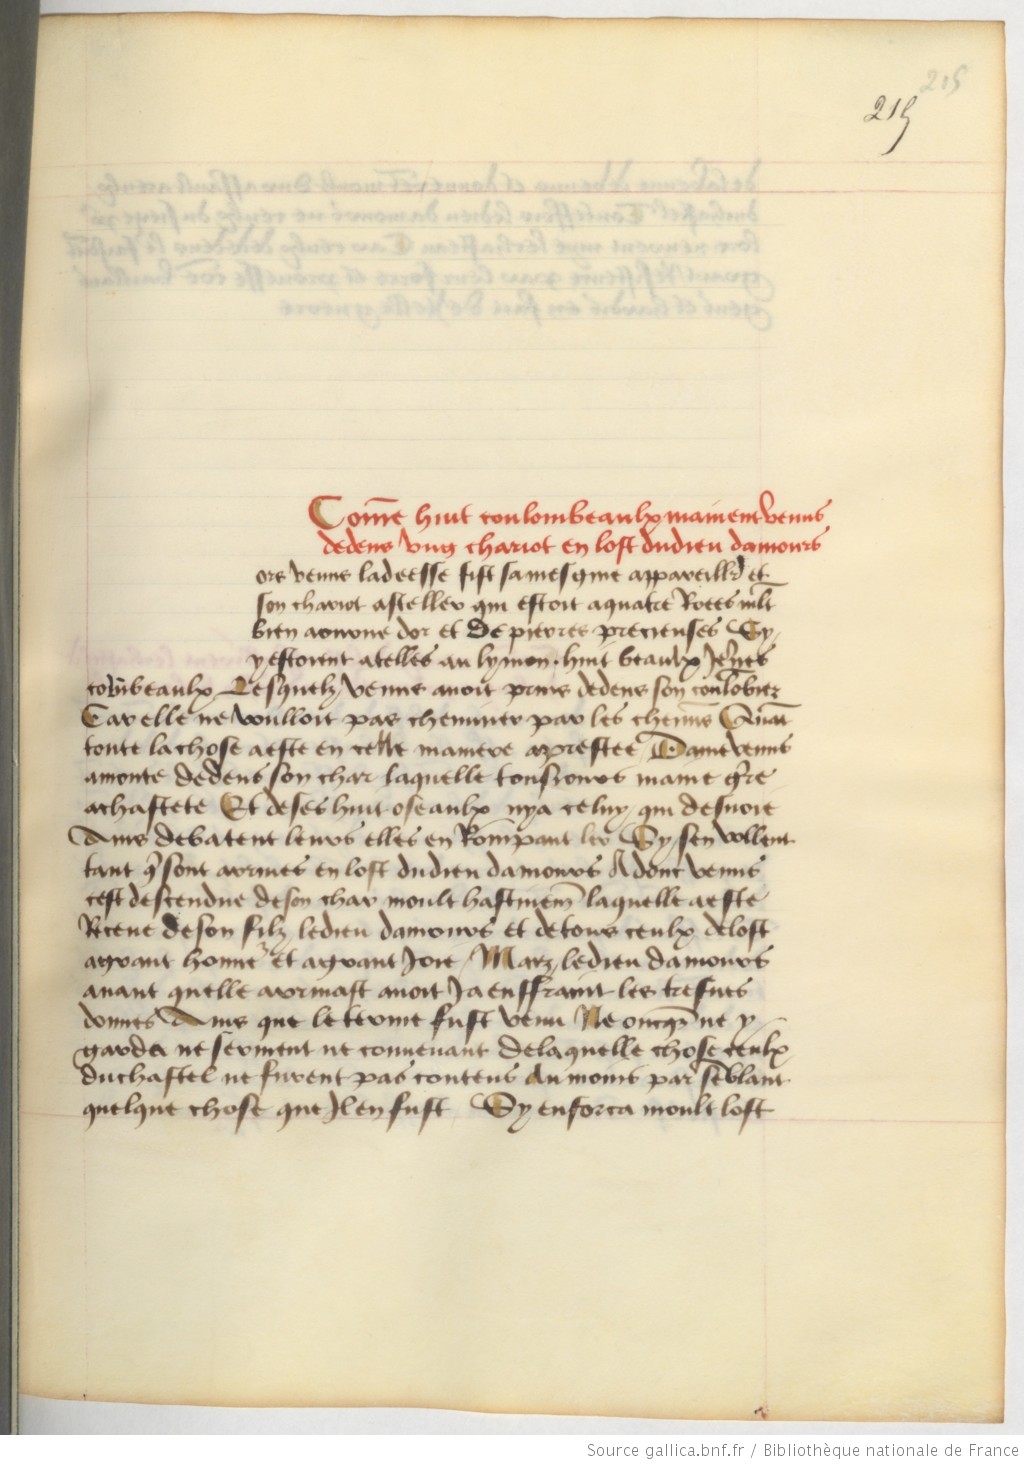 215
215
Com̄e huit coulombeaulx mainent venus
dedens vng chariot en lost dudieu damours
ors venus ladeesse fist samesgnie appareill̄r et
son chariot asteller qui estoit aquatre Roees ml̄t
bien aourne dor et De pierres precieuses Sy
y estoient atelles au lymon huit beaulx Jeūes
colūbeaulx Lesquelz venus auoit prins dedens son coulōbier
Car elle ne voulloit pas cheminer par les chemis Quāt
toute lachose aeste en celle maniere aprestee Dame venus
amonte dedens son char laquelle tousiours maine gr̄re
achastete Et deses huit oseaulx nya celuy qui desuoie
Ains debatent leurs elles en Rompant ler Sy sen vollent
tant q̄ sont arriues en lost dudieu damours Adonc venus
cest descendue deson char moult hastiuem̄ laquelle aeste
Receue deson filz ledieu damours et detous ceulx delost
agrant honner et agrant Joie Marz ledieu damours
auant quelle arriuast auoit Ja enffraint les treſues
donnes Ains que le terme fust venu Ne oncq̄s ne y
garda ne serment ne conuenant delaquelle chose ceulx
duchastel ne furent pas contens Au moins par sēblant
quelque chose que Jl en fust Sy enforca moult lost
Source gallica.bnf.fr / Bibliothèque nationale de France